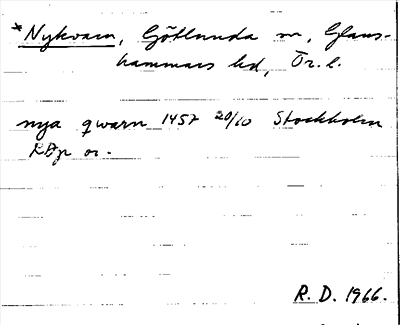 *Nykvarn, Götlunda sn, Glans-
hammars hd, Ör. l.
nya qwarn 1457 20/10 Stockholm
RAp or.
R. D. 1966.